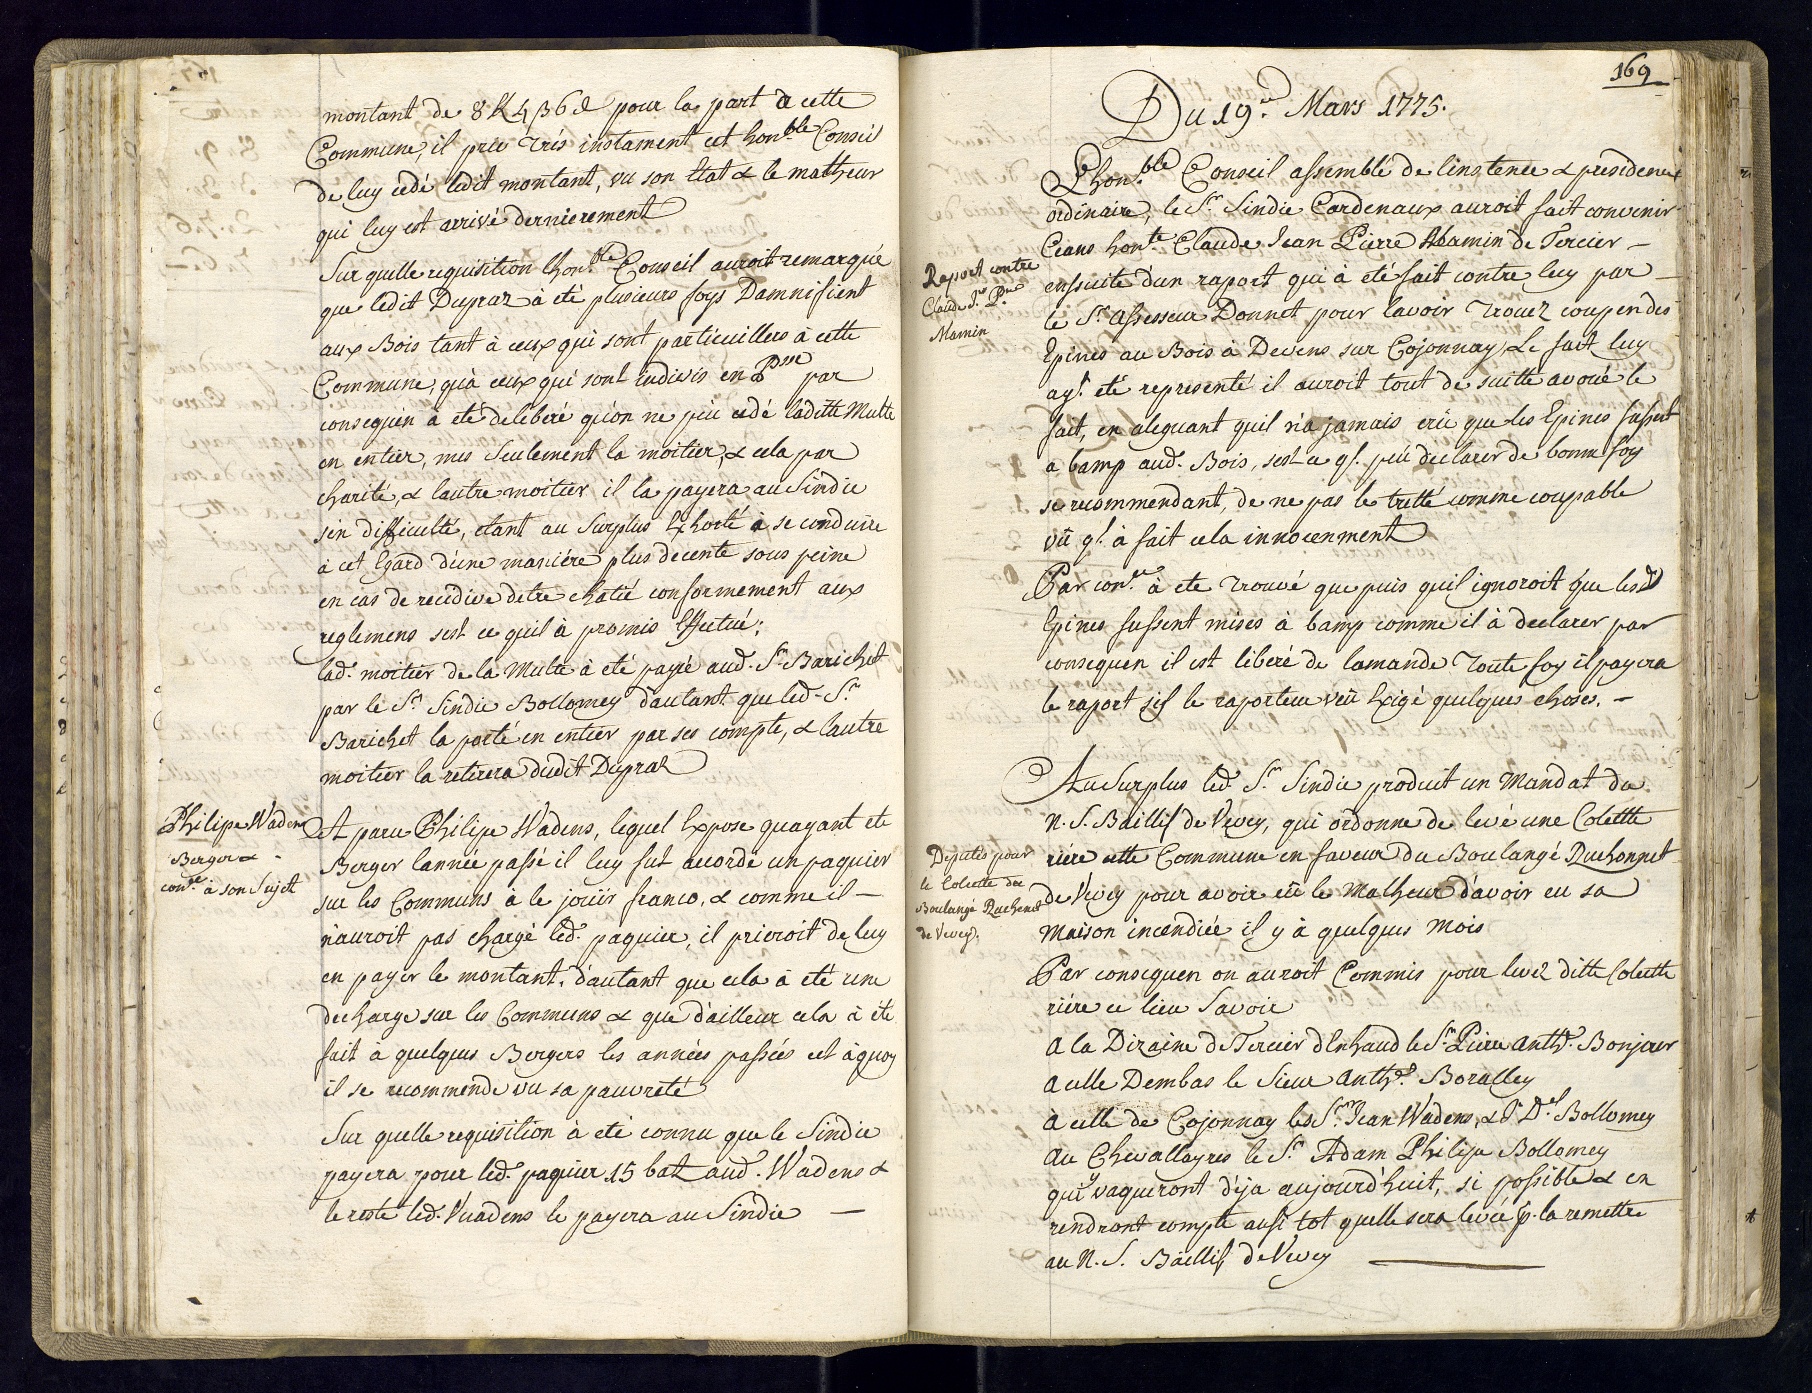 montant de 8 K 4 β 6 d pour la part à cette
Commune, il prie trés instament cet hon.ble Conseil
de luy cedé ledit montant, vu son Etat & le malheur
qui luy est arrivé dernierement
Sur quelle requisition lhon.ble Conseil auroit remarqué
que ledit Dupraz à eté plusieurs foys Damnifient
aux Bois tant à ceux qui sont particuillers à cette
Commune, quà ceux qui sont indivis en P.sse par
consequen à eté deliberé qu'on ne peu cedé laditte Multe
en entier, mes seulement la moitier, & cela par
charité, & lautre moitier il la payera au Sindic
sen difficulté, etant au Surplus Exhorté à se conduire
à cet Egard d'une maniére plus decente sous peine
en cas de recidive detre chatié conformement aux
reglemens sest ce quil à promis Effectué;
lad. moitier de la Multe à eté payée aud. Sr. Barichet
par le Sr. Sindic Bollomey d'autant que led. Sr.
Barichet la porté en entier par ses compte, & lautre
moitier la retirera dudit Dupraz
Philipe Wadens
Berger &
con.ce à son Sujet
A paru Philipe Wadens, lequel Expose quayant eté
Berger lannée passé il luy fut acordé un paquier
sur les Communs à le jouir franco, & comme il –
n'auroit pas chargé led. paquier, il prieroit de luy
en payer le montant. d'autant que cela à eté une
decharge sur les Communs & que d'ailleur cela à été
fait à quelques Bergers les années passées et à quoy
il se recommende vu sa pauvreté
Sur quelle requisition à eté connu que le Sindic
payera pour led. paquier 15 batz aud. Wadens &
le reste led. Vuadens le payera au Sindic —
169
Du 19.e Mars 1775.
Lhon.ble Conseil assemblé de linstence & presidence
ordinaire, le Sr. Sindic Cardenaux auroit fait convenir
Ceans hon.te Claude Jean Pierre Mamin de Tercier –
Raport contre
Claude Jn. P.re
Mamin
ensuite dun raport qui à eté fait contre luy par –
le Sr. Assesseur Donnet pour lavoir trouez coupen des
Epines au Bois à Devens sur Cojonnay, Le fait luy
ayt. eté representé il auroit tout de suitte avoué le
fait, en aleguant quil n'à jamais crû que les Epines fussent
a bamp aud. Bois, sest ce ql. peû declarer de bonne foy
se recommendant, de ne pas le tretté comme coupable
vû ql. à fait cela innocenment
Par con.ce à eté trouvé que puis quil ignoroit que lesd.
Epines fussent mises à bamp comme il à declarer par
consequen il est liberé de lamande toute foy il payera
le raport sil le raporteur veû Exigé quelques choses. –
Au Surplus led. Sr. Sindic produit un Mandat du
N. S. Baillif de Vevey, qui ordonne de levé une Colette
Deputés pour
le Colecte du
Boulangé Ruchonet
de Vevey.
riére cette Commune en faveur du Boulangé Ruchonnet
de Vevey pour avoir eû le Malheur d'avoir eu sa
Maison incendiée il y à quelques Mois
Par consequen on auroit Commis pour levez ditte Colette
riére ce lieu Savoir
A la Dizaine de Tercier d'Enhaud le Sr. Pierre Anth.e Bonjour
A celle Dembas le Sieur Anth.e Boralley
à celle de Cojonnay les Srs. Jean Wadens, & Jn. D.el Bollomey
Au Chevalleyres le Sr. Adam Philipe Bollomey
qui y vaqueront d'eja aujourd'huit, si possible & en
rendront compte ausi tot quelle sera levée p. la remettre
au N. S. Baillif de Vevey